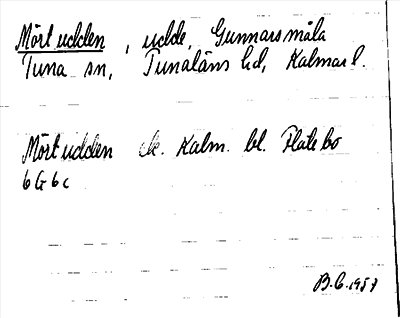 Mörtudden, udde, Gunnarsmåla
Tuna sn, Tunaläns hd, Kalmar l.
Mörtudden ek. Kalm. bl. Flatebo
6G6c
B.C. 1957